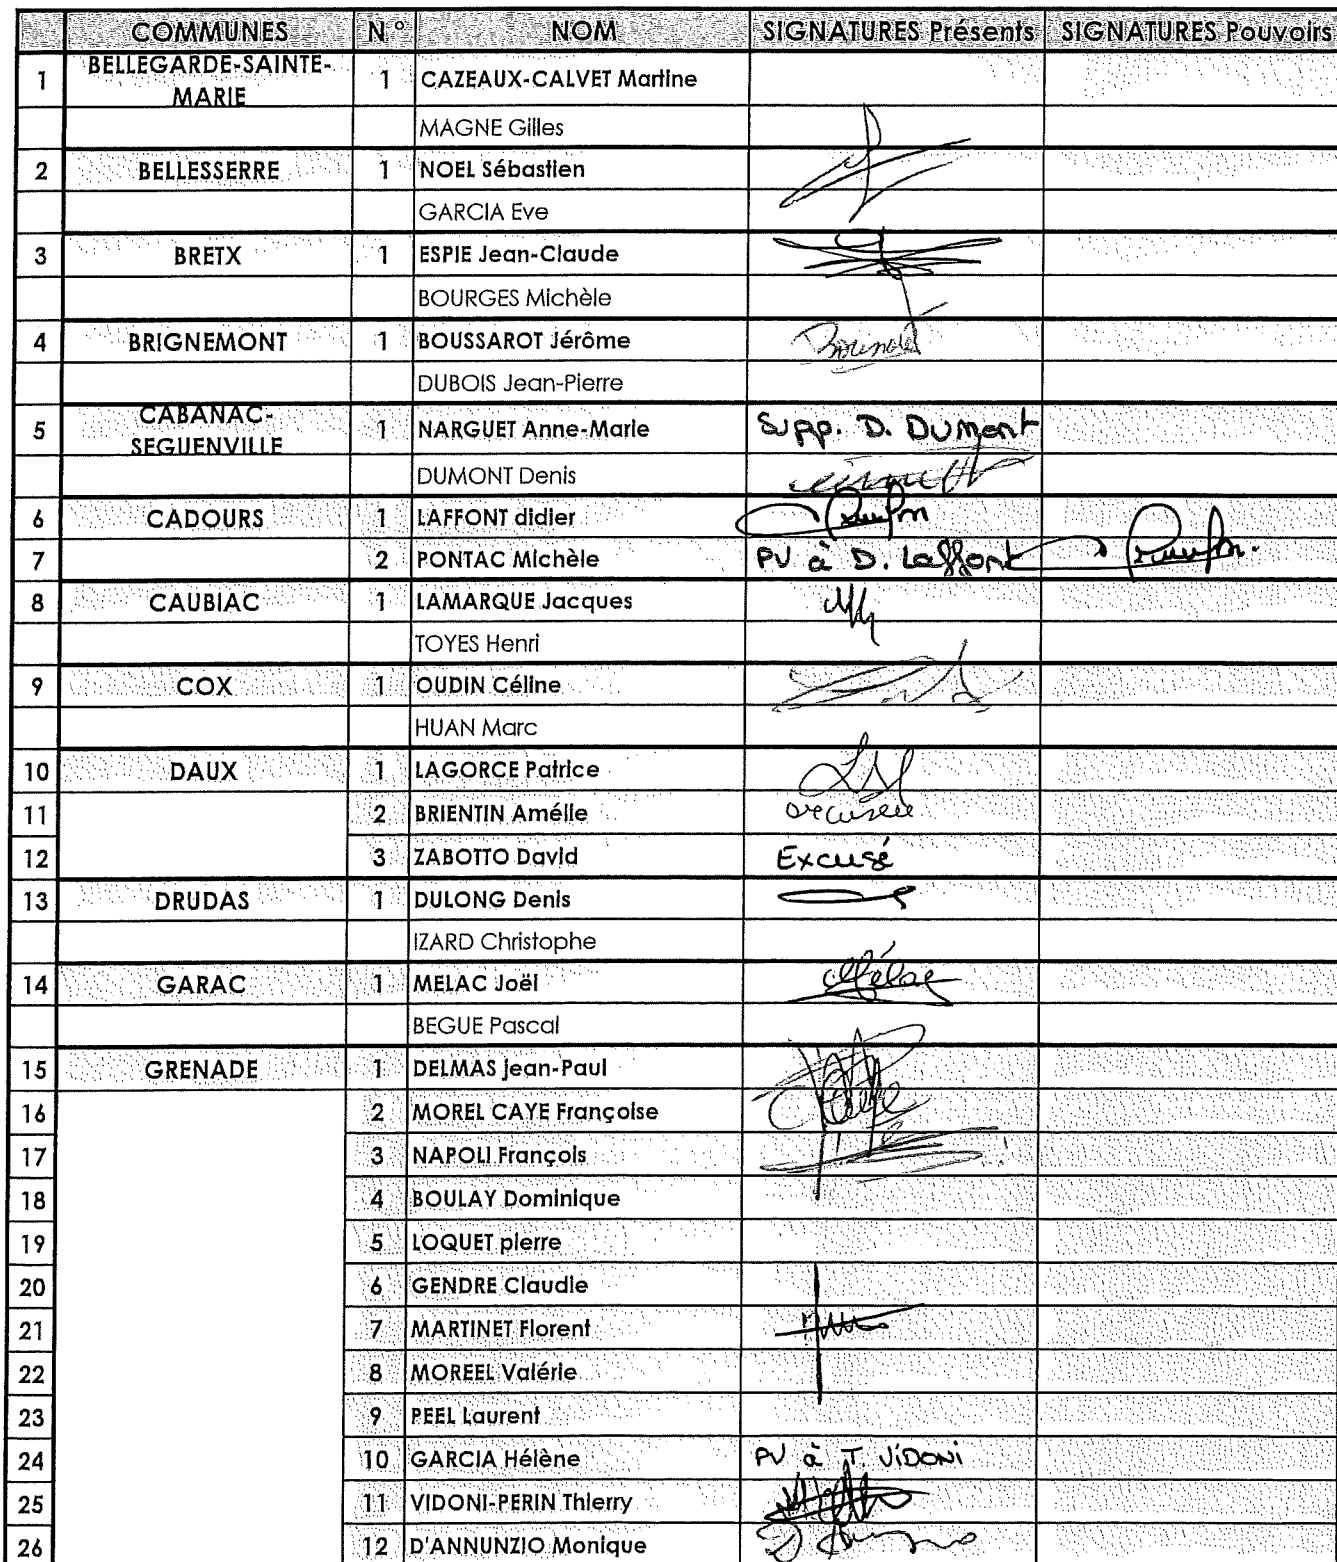 COMMUNES N° NOM SIGNATURES Présents SIGNATURES Pouvoirs
1 BELLEGARDE-SAINTE-MARIE 1 CAZEAUX-CALVET Martine
MAGNE Gilles
2 BELLESSERRE 1 NOEL Sébastien
GARCIA Eve
3 BRETX 1 ESPIE Jean-Claude
BOURGES Michèle
4 BRIGNEMONT 1 BOUSSAROT Jérôme
DUBOIS Jean-Pierre
5 CABANAC-SEGUENVILLE 1 NARGUET Anne-Marie Supp. D. Dumont
DUMONT Denis
6 CADOURS 1 LAFFONT didier
7 2 PONTAC Michèle PV à D. Laffont
8 CAUBIAC 1 LAMARQUE Jacques
TOYES Henri
9 COX 1 OUDIN Céline
HUAN Marc
10 DAUX 1 LAGORCE Patrice
11 2 BRIENTIN Amélie excusée
12 3 ZABOTTO David Excusé
13 DRUDAS 1 DULONG Denis
IZARD Christophe
14 GARAC 1 MELAC Joël
BEGUE Pascal
15 GRENADE 1 DELMAS Jean-Paul
16 2 MOREL CAYE Françoise
17 3 NAPOLI François
18 4 BOULAY Dominique
19 5 LOQUET pierre
20 6 GENDRE Claudie
21 7 MARTINET Florent
22 8 MOREEL Valérie
23 9 PEEL Laurent
24 10 GARCIA Hélène PV à T. ViDONi
25 11 VIDONI-PERIN Thierry
26 12 D'ANNUNZIO Monique